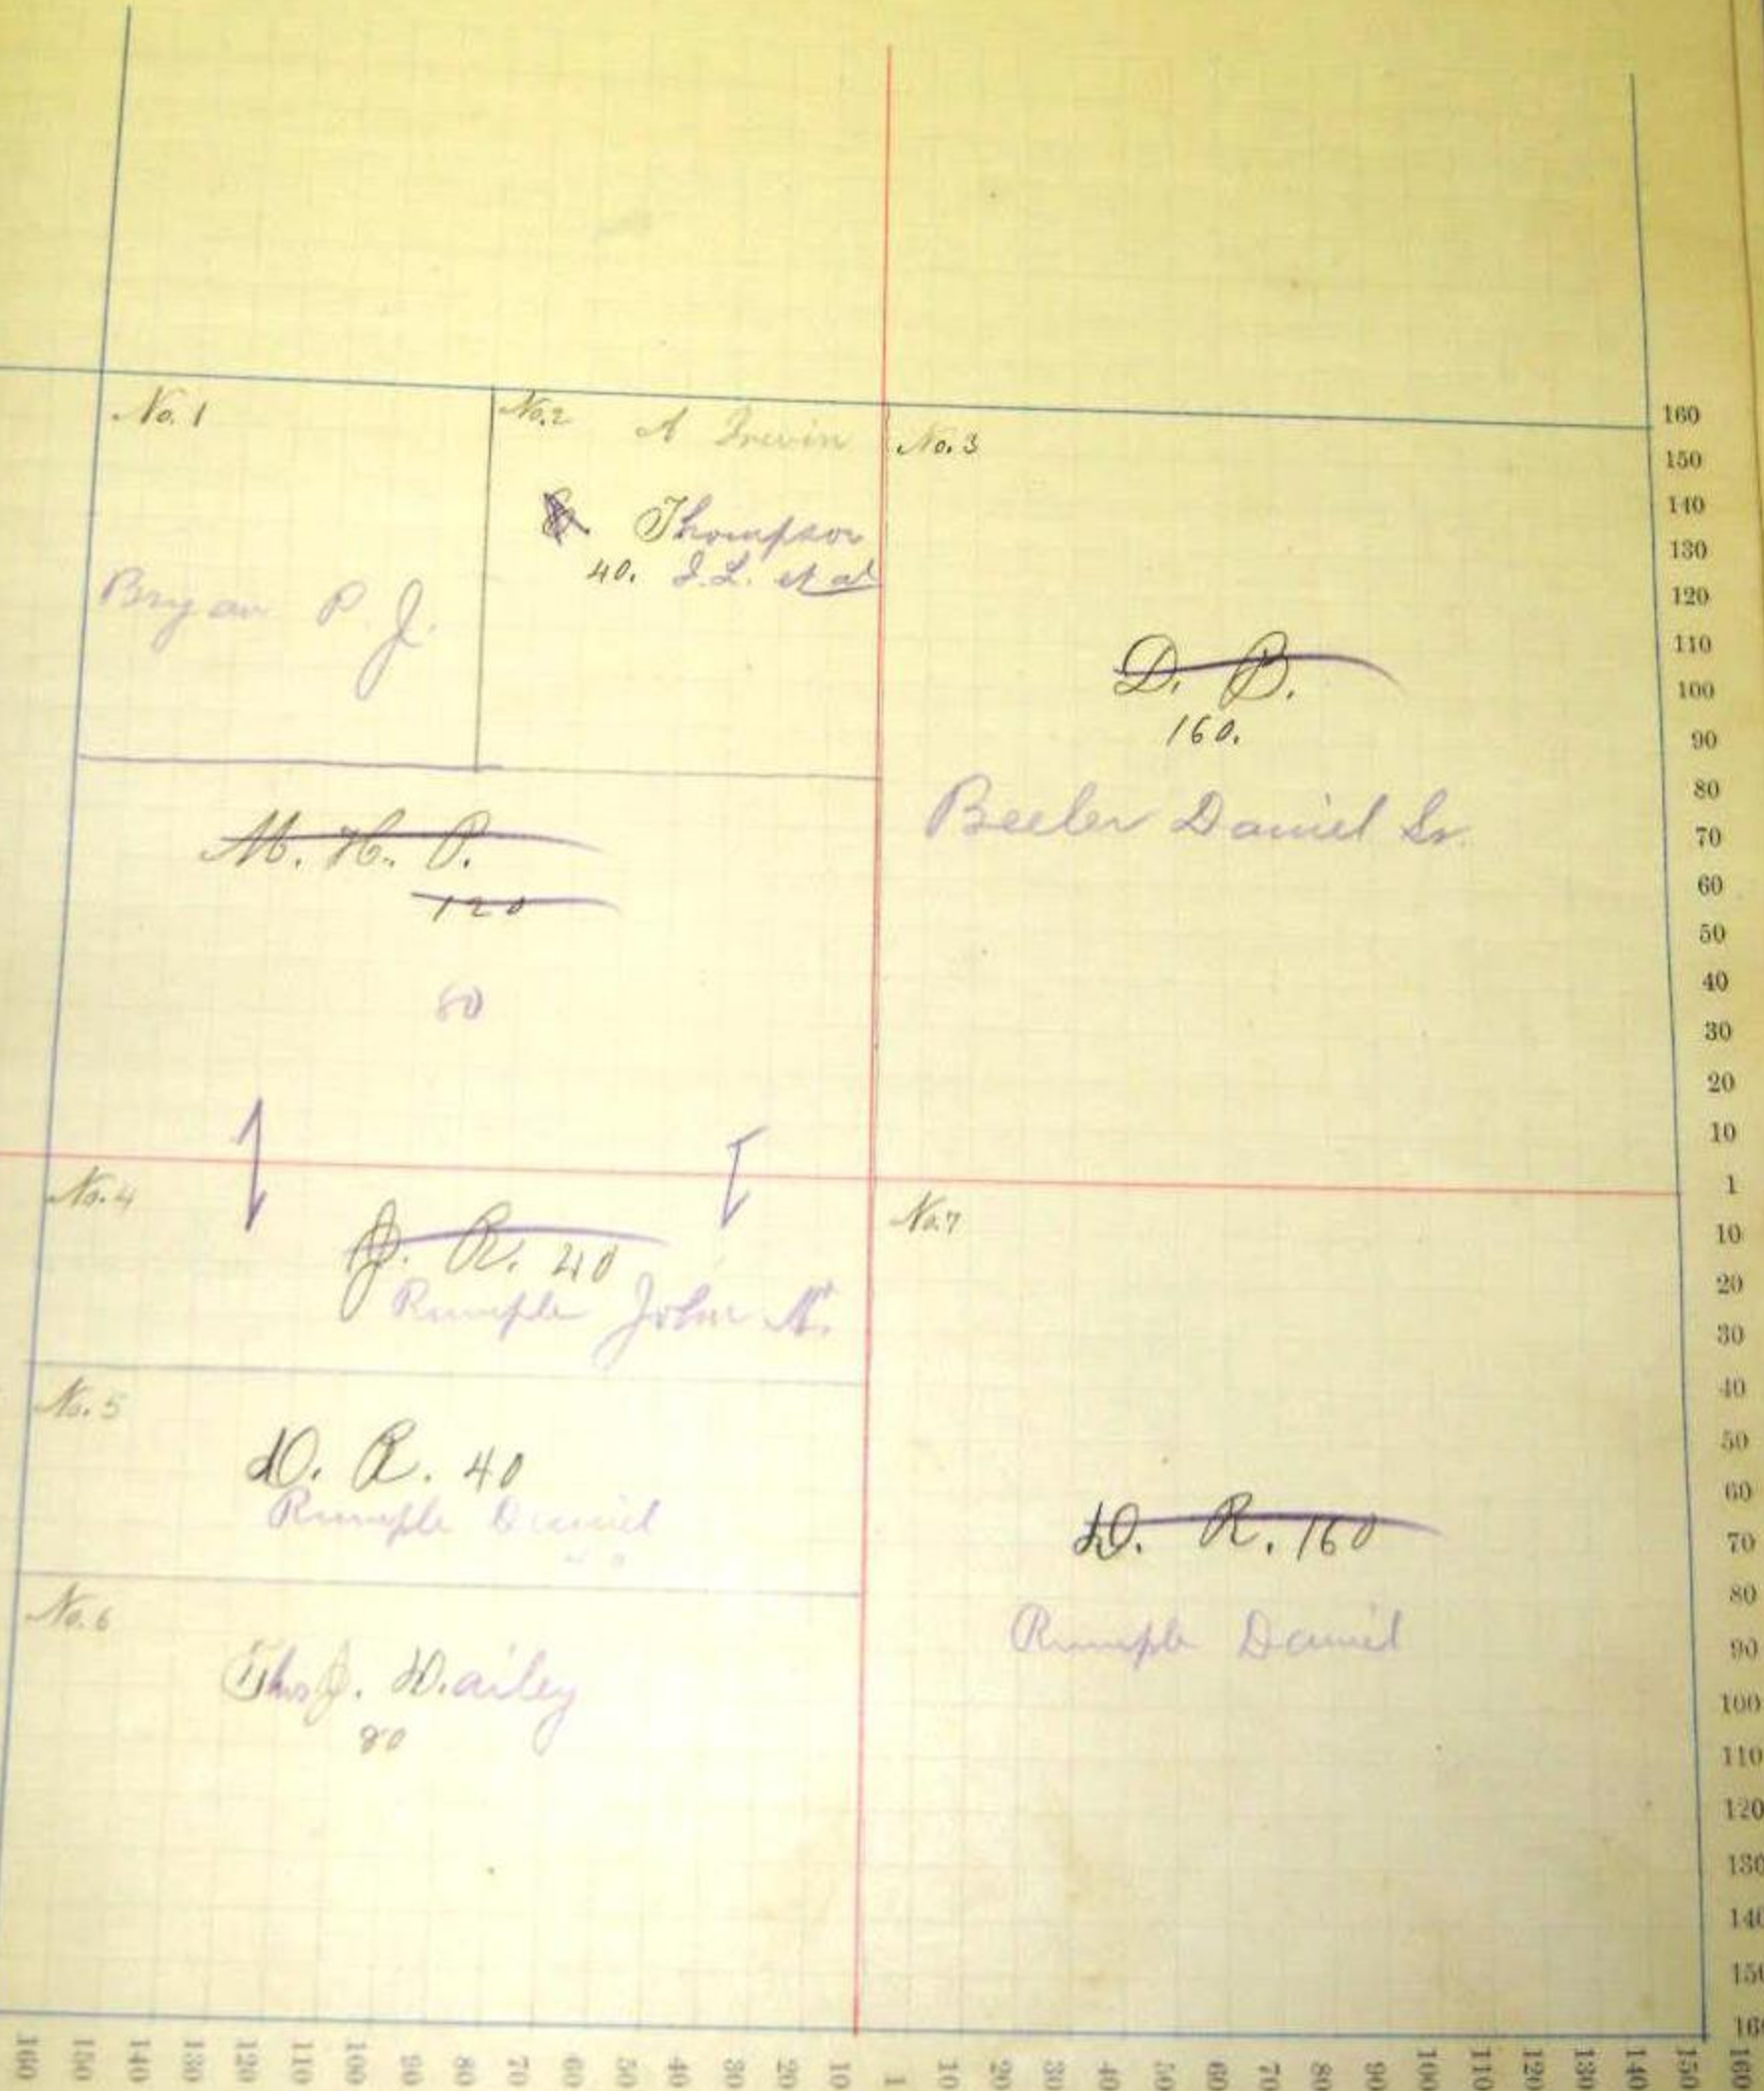 No. 1
Bryan P. J.
No. 2
A
Thompson
40. J. L. et al
No. 3
D. B.
160.
Beeler Daniel Sr.
M. H. P.
120
80
No. 4
J. R. 40
Rumple John N.
No. 5
D. R. 40
Rumple Daniel
40
No. 6
Thos J. Dailey
80
No. 7
D. R. 160
Rumple Daniel
160
150
140
130
120
110
100
90
80
70
60
50
40
30
20
10
1
10
20
30
40
50
60
70
80
90
100
110
120
130
140
150
160
160 150 140 130 120 110 100 90 80 70 60 50 40 30 20 10 1 10 20 30 40 50 60 70 80 90 100 110 120 130 140 150 160